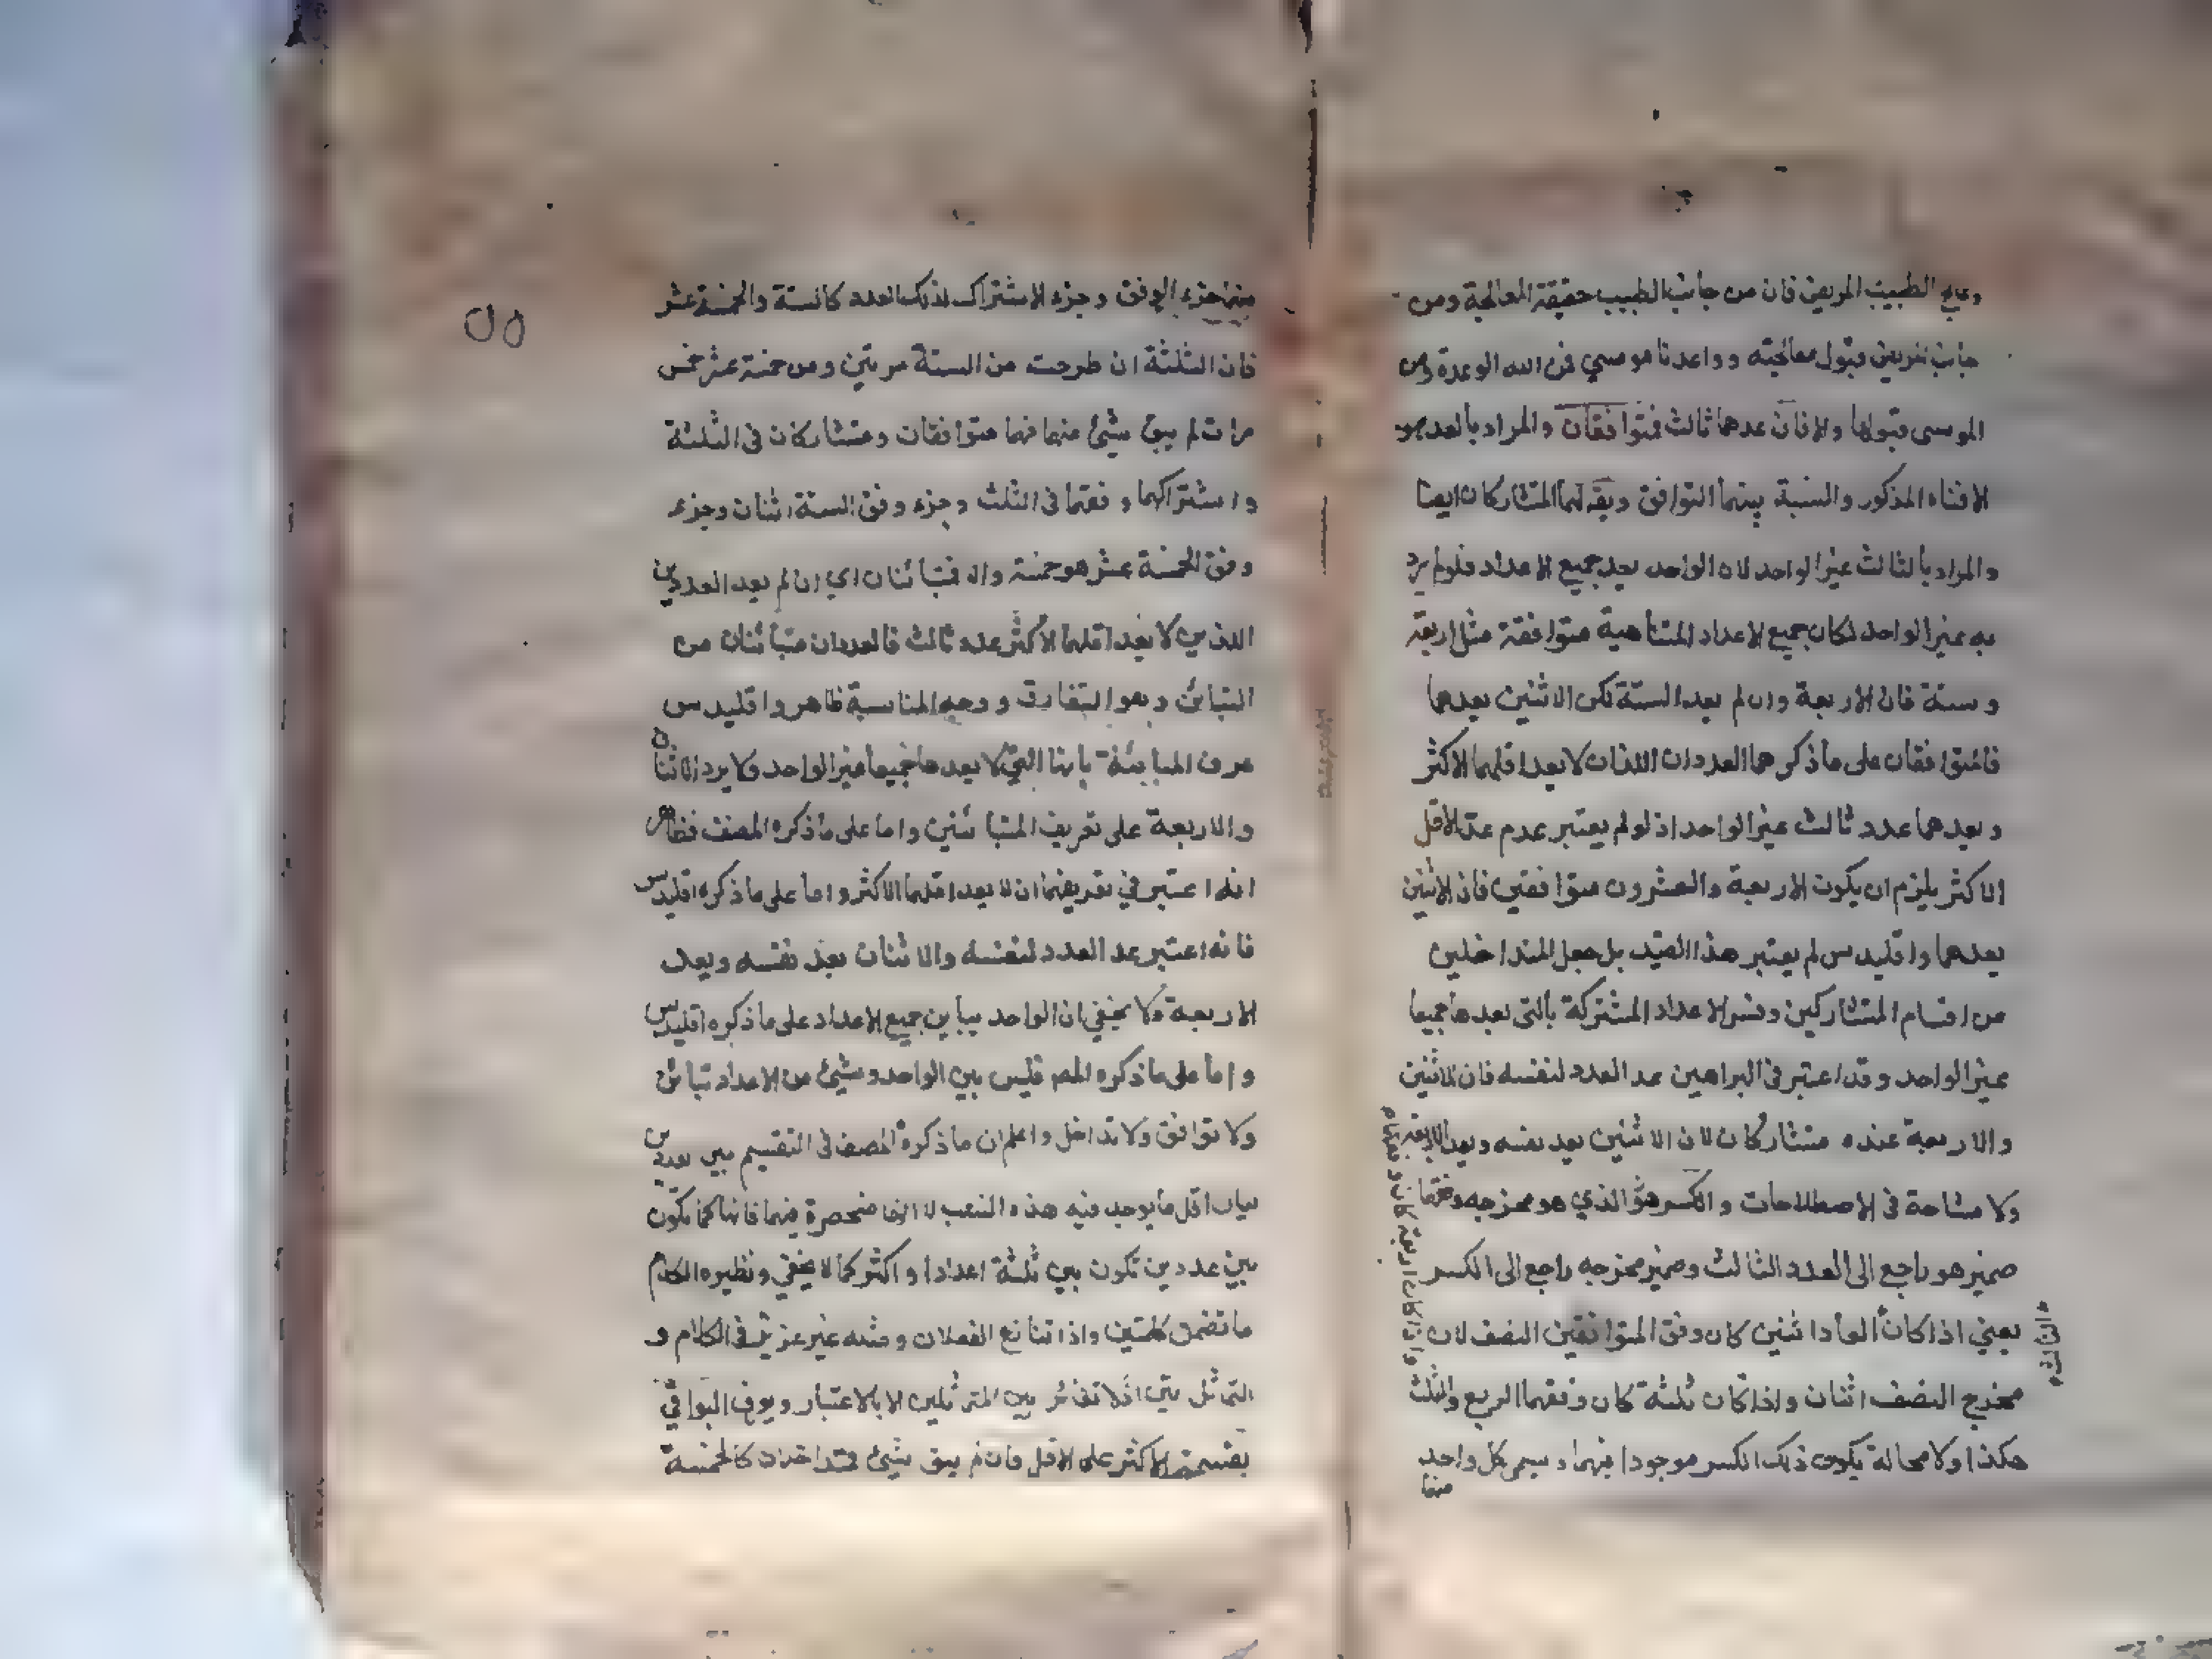 وعالج الطبيب المريض فان من جانب الطبيب حقيقة المعالجة ومن
جانب المريض قبول معالجته وواعدنا موسي فن الله الوعدة ومن
الموسى قبولها والا فان عدهما ثالث فتوافقان والمراد بالعد هو
الافناء المذكور والنسبة بينهما التوافق ويقه لهما المتشاركان ايضا
والمراد بالثالث غير الواحد لان الواحد يعد جميع الاعداد فلو لم يرد
به غير الواحد لكان جميع الاعداد المتناهية متوافقة مثل اربعة
وستة فان الاربعة وان لم يعد الستة لكن الاثنين يعدهما
فالمتوافقان على ما ذكر هما العددان اللذان لا يعد اقلهما الاكثر
ويعدهما عدد ثالث غير الواحد اذ لو لم يعتبر عدم عد الاقل
الاكثر يلزم ان يكون الاربعة والعشرون متوافقين فان الاثنين
يعدهما واقليدس لم يعتبر هذا القيد بل جعل المتداخلين
من اقسام المتشاركين وفسر الاعداد المشتركة بالتي يعدها جميعا
غير الواحد وقد اعتبر في البراهين عد العدد لنفسه فان الاثنين
والاربعة عنده متشاركان لان الاثنين يعد نفسه ويعد الاربعة
ولا مشاحة في الاصطلاحات والكسر هو الذي هو مخرجه وفقهما
ضمير هو راجع الى العدد الثالث وضمير مخرجه راجع الى الكسر
يعني اذا كان العاد اثنين كان وفق المتوافقين النصف لان
مخرج النصف اثنان واذا كان ثلثة كان وفقهما الربع والثلث
هكذا ولا محالة يكون ذلك الكسر موجودا فيهما ويسمى كل واحد
منهما
الثالث
واذا كان اربعة كان وفقهما
منهما جزء الوفق وجزء الاشتراك لذلك العدد كالستة والخمسة عشر
فان الثلثة ان طرحت من الستة مرتين ومن خمسة عشر خمس
مرات لم يبق شئ منهما فهما متوافقان ومتشاركان في الثلثة
واشتراكهما وفقهما في الثلث وجزء وفق الستة اثنان وجزء
وفق الخمسة عشر هو خمسة والا فتبائنان اي ان لم يعد العددين
اللذين لا يعد اقلهما الاكثر عدد ثالث فالعددان متبائنان من
التبائن وهو التفارق ووجه المناسبة ظاهر واقليدس
عرف المبائنة بانها التي لا يعدها جميعا غير الواحد ولا يرد الاثنان
والاربعة على تعريف المتبائنين واما على ما ذكره المصنف فظاهر
انه اعتبر في تعريفهما ان لا يعد اقلهما الاكثر واما على ما ذكره اقليدس
فانه اعتبر عد العدد لنفسه والاثنان يعد نفسه ويعد
الاربعة ولا يخفي ان الواحد يباين جميع الاعداد على ما ذكره اقليدس
واما على ما ذكره المص فليس بين الواحد وشئ من الاعداد تبائن
ولا توافق ولا تداخل واعلم ان ما ذكره المصنف في التقسيم بين عددين
بيان اقل ما يوجد فيه هذه النسب لا انها منحصرة فيهما فانها كما تكون
بين عددين تكون بين ثلثة اعداد او اكثر كما لا يخفي ونظيره الكلام
ما تضمن كلمتين واذا تنازع الفعلان ومثله غير عزيز في الكلام و
اذ لا تغاير بين المتماثلين الا بالاعتبار ويعرف البواقي
بقسمة الاكثر على الاقل فان لم يبق شئ فتداخلان كالخمسة